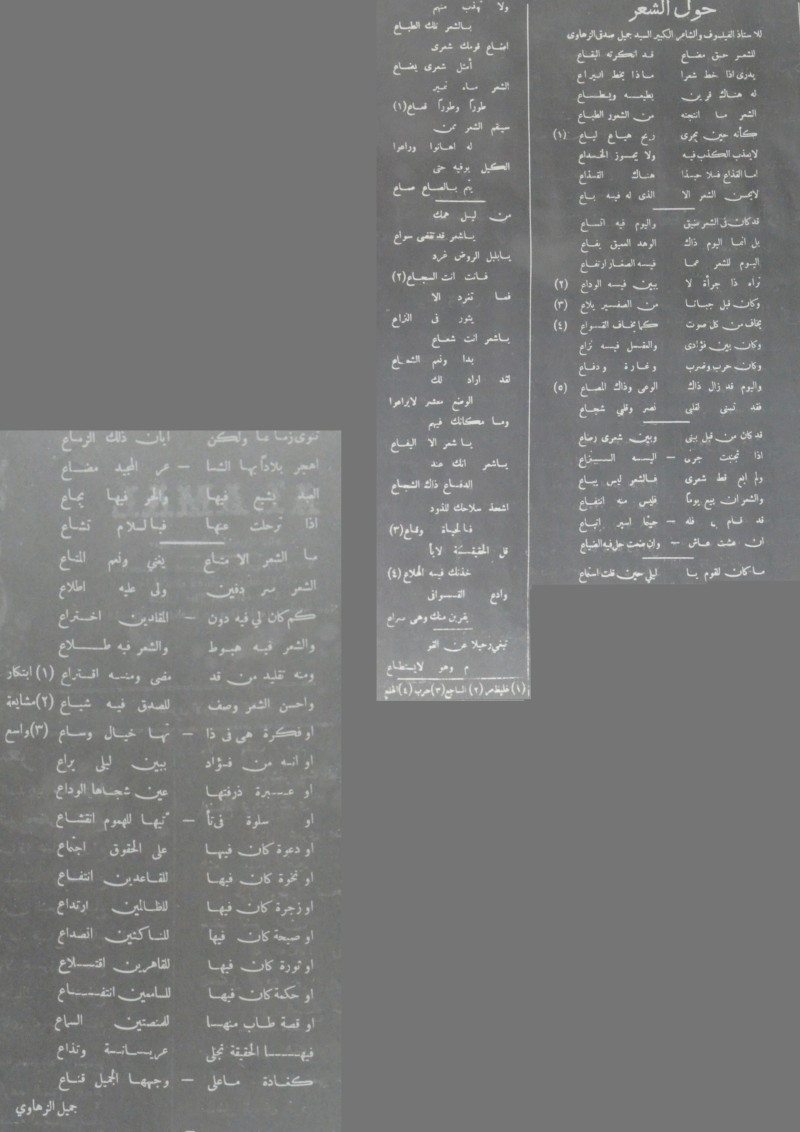 حول الشعر
للاستاذ الفيلسوف والشاعر الكبير السيد جميل صدقي الزهاوي
للشعر حق مضاع قد انكرته البقاع
يدرى اذا خط شعرا ماذا يخط اليراع
له هناك قرين يطيعه ويطاع
الشعر ما انتجته من الشعور الطباع
كأنه حين يجرى ريح هياع لياع (١)
لايعذب الكذب فيه ولا يجوز الخداع
اما القذاع فلا حبذا هناك القذاع
لايحسن الشعر الا الذى له فيه باع
قد كان فى الشعر ضيق واليوم فيه اتساع
بل انما اليوم ذاك الوهد العميق يفاع
اليوم للشعر عما فيه الصغار ارتفاع
تراه ذا جرأة لا يبين فيه الوداع (٢)
وكان قبل جبانا من الصفير يلاع (٣)
يخاف من كل صوت كما يخاف القواع (٤)
وكان بين فؤادى والعقل فيه نزاع
وكان حرب وضرب وغارة ودفاع
واليوم قد زال ذاك الوعى وذاك المصاع (٥)
فقد تسنى لقلبى نصر وقلبي شجاع
قد كان من قبل بينى وبين شعرى رضاع
اذا تجنبت جرنى – اليه النزاع
ولم ابع قط شعرى فالشعر ليس يباع
والشعر ان بيع يوماً فليس منه انتفاع
ان عشت عاش – وان مت حل فيه الضياع
ما كان لقوم يا ليلي حين قلت استماع
ولا توقت منهم
بالشعر تلك الطباع
اضاع قومك شعرى
أمثل شعرى يضاع
الشعر ماء نمير
طوراً وطوراً قعاع (١)
سيقم الشعر ممن
له اهانوا وراعوا
الكيل يوفيه حتى
يتم بالصاع صاع
من ليل همك
ياشعر قد تقفى سراع
يابلبل الروض غرد
فانت انت السجاع (٢)
فما تغرد الا
يثور فى النزاع
ياشعر انت شعاع
بدا ونعم الشعاع
لقد اراد لك
الوضع معشر لايراعوا
وما مكانك فيهم
يا شعر الا اليفاع
ياشعر انك عند
الدفاع ذاك الشجاع
اشحذ سلاحك للذود
فالحياة وقاع (٣)
قل الحقيقة لا يأ
خذنك فيه الهلاع (٤)
وادع القوافى
يقربن منك وهى سراع
تبغي رحيلا عن القو
م وهو لايستطاع
(٢) الساجع (٣) حرب (٤) الهلع
ثنوى زما ما ولكن ايان ذلك الزماع
اهجر بلاداً بها الشا – عر المجيد مضاع
العبد يشبع فيها والحر فيها يجاع
اذا ترحلت عنها فبالسلام تشاع
ما الشعر الا متاع يغني ونعم المتاع
الشعر سر دفين ولى عليه اطلاع
كم كان لي فيه دون – المقلدين اختراع
والشعر فيه هبوط والشعر فيه طلاع
ومنه تقليد من قد مضى ومنه اقتراع (١) ابتكار
واحسن الشعر وصف للصدق فيه شياع (٢) مشايعة
او فكرة هى فى ذا – تها خيال وساع (٣) واسع
او انه من فؤاد ببين ليلى يراع
او عبرة ذرفتها عين شجاها الوداع
او سلوة فى تأ – تيها للهموم انقشاع
او دعوة كان فيها على الحقوق اجتماع
او نخوة كان فيها للقاعدين انتفاع
او زجرة كان فيها للظالمين ارتداع
او صيحة كان فيها للناكثين انصداع
او ثورة كان فيها للقاهرين اقتلاع
او حكمة كان فيها للسامعين انتفاع
او قصة طاب منها للمنصتين السماع
فيها الحقيقة تجلى عريانة وتذاع
كغادة ما على – وجهها الجميل قناع
جميل الزهاوي